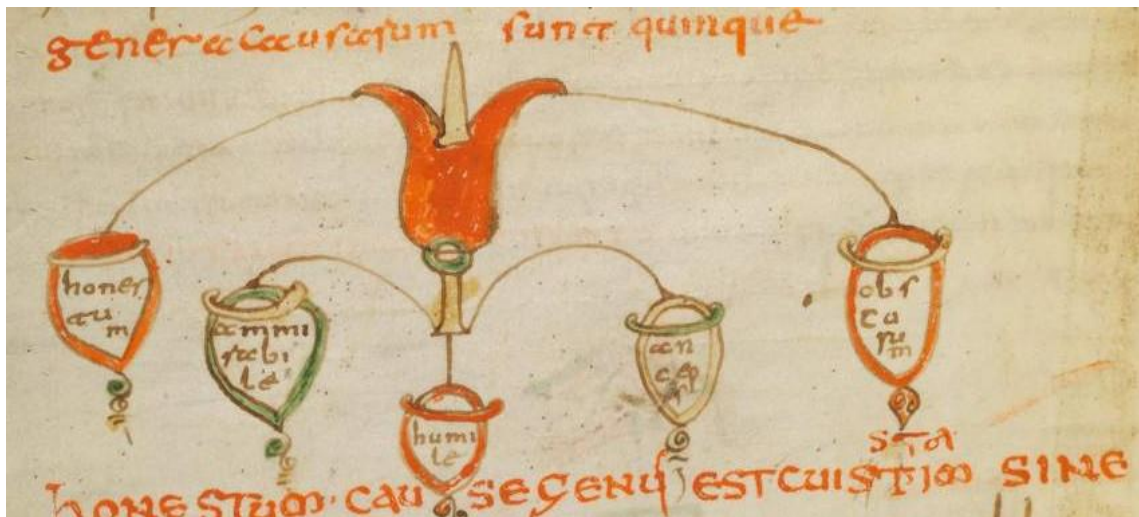 genera causarum sunt quinque
hones
tu
m
ammi
rabi
le
humi
le
an
cep
obs
cu
ru
m
sta
HONESTUM · CAUSE GENUS EST CUISTIM SINE